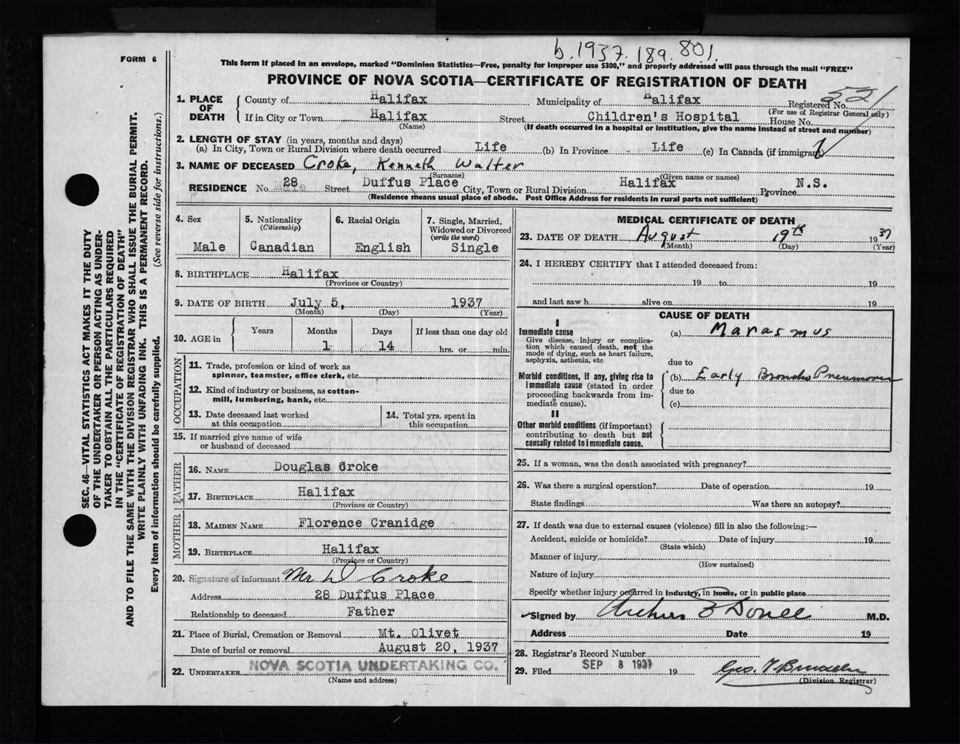 b. 1937. 189. 801.
FORM 6
This form if placed in an envelope, marked "Dominion Statistics—Free, penalty for improper use $300," and properly addressed will pass through the mail "FREE"
PROVINCE OF NOVA SCOTIA—CERTIFICATE OF REGISTRATION OF DEATH
SEC. 46—VITAL STATISTICS ACT MAKES IT THE DUTY
OF THE UNDERTAKER OR PERSON ACTING AS UNDER-
TAKER TO OBTAIN ALL THE PARTICULARS REQUIRED
IN THE "CERTIFICATE OF REGISTRATION OF DEATH"
AND TO FILE THE SAME WITH THE DIVISION REGISTRAR WHO SHALL ISSUE THE BURIAL PERMIT.
WRITE PLAINLY WITH UNFADING INK. THIS IS A PERMANENT RECORD.
Every item of information should be carefully supplied. (See reverse side for instructions.)
1. PLACE OF DEATH
County of Halifax Municipality of Halifax Registered No. 521
(For use of Registrar General only)
If in City or Town Halifax Street Children's Hospital House No.
(Name) (If death occurred in a hospital or institution, give the name instead of street and number)
2. LENGTH OF STAY (in years, months and days)
(a) In City, Town or Rural Division where death occurred Life (b) In Province Life (c) In Canada (if immigrant)
3. NAME OF DECEASED Croke, Kenneth Walter
(Surname) (Given name or names)
RESIDENCE No. 28 Street Duffus Place City, Town or Rural Division Halifax Province N.S.
(Residence means usual place of abode. Post Office Address for residents in rural parts not sufficient)
4. Sex Male
5. Nationality (Citizenship) Canadian
6. Racial Origin English
7. Single, Married, Widowed or Divorced (write the word) Single
8. BIRTHPLACE Halifax
(Province or Country)
9. DATE OF BIRTH July 5, 1937
(Month) (Day) (Year)
10. AGE in Years Months 1 Days 14 If less than one day old hrs. or min.
OCCUPATION
11. Trade, profession or kind of work as
spinner, teamster, office clerk, etc.
12. Kind of industry or business, as cotton-
mill, lumbering, bank, etc.
13. Date deceased last worked
at this occupation
14. Total yrs. spent in
this occupation
15. If married give name of wife
or husband of deceased
FATHER
16. NAME Douglas Croke
17. BIRTHPLACE Halifax
(Province or Country)
MOTHER
18. MAIDEN NAME Florence Cranidge
19. BIRTHPLACE Halifax
(Province or Country)
20. Signature of informant Mr D Croke
Address 28 Duffus Place
Relationship to deceased Father
21. Place of Burial, Cremation or Removal Mt. Olivet
Date of burial or removal August 20, 1937
22. UNDERTAKER NOVA SCOTIA UNDERTAKING CO.
(Name and address)
MEDICAL CERTIFICATE OF DEATH
23. DATE OF DEATH August 19th 1937
(Month) (Day) (Year)
24. I HEREBY CERTIFY that I attended deceased from:
19 to 19
and last saw h alive on 19
CAUSE OF DEATH
I
Immediate cause
Give disease, injury or complica-
tion which caused death, not the
mode of dying, such as heart failure,
asphyxia, asthenia, etc.
(a) Marasmus
due to
Morbid conditions, if any, giving rise to
immediate cause (stated in order
proceeding backwards from im-
mediate cause).
(b) Early Broncho Pneumonia
due to
(c)
II
Other morbid conditions (if important)
contributing to death but not
causally related to immediate cause.
25. If a woman, was the death associated with pregnancy?
26. Was there a surgical operation? Date of operation 19
State findings Was there an autopsy?
27. If death was due to external causes (violence) fill in also the following:—
Accident, suicide or homicide? Date of injury 19
(State which)
Manner of injury
(How sustained)
Nature of injury
Specify whether injury occurred in industry, in home, or in public place
Signed by M.D.
Address Date 19
28. Registrar's Record Number
29. Filed SEP 8 1937 19
(Division Registrar)